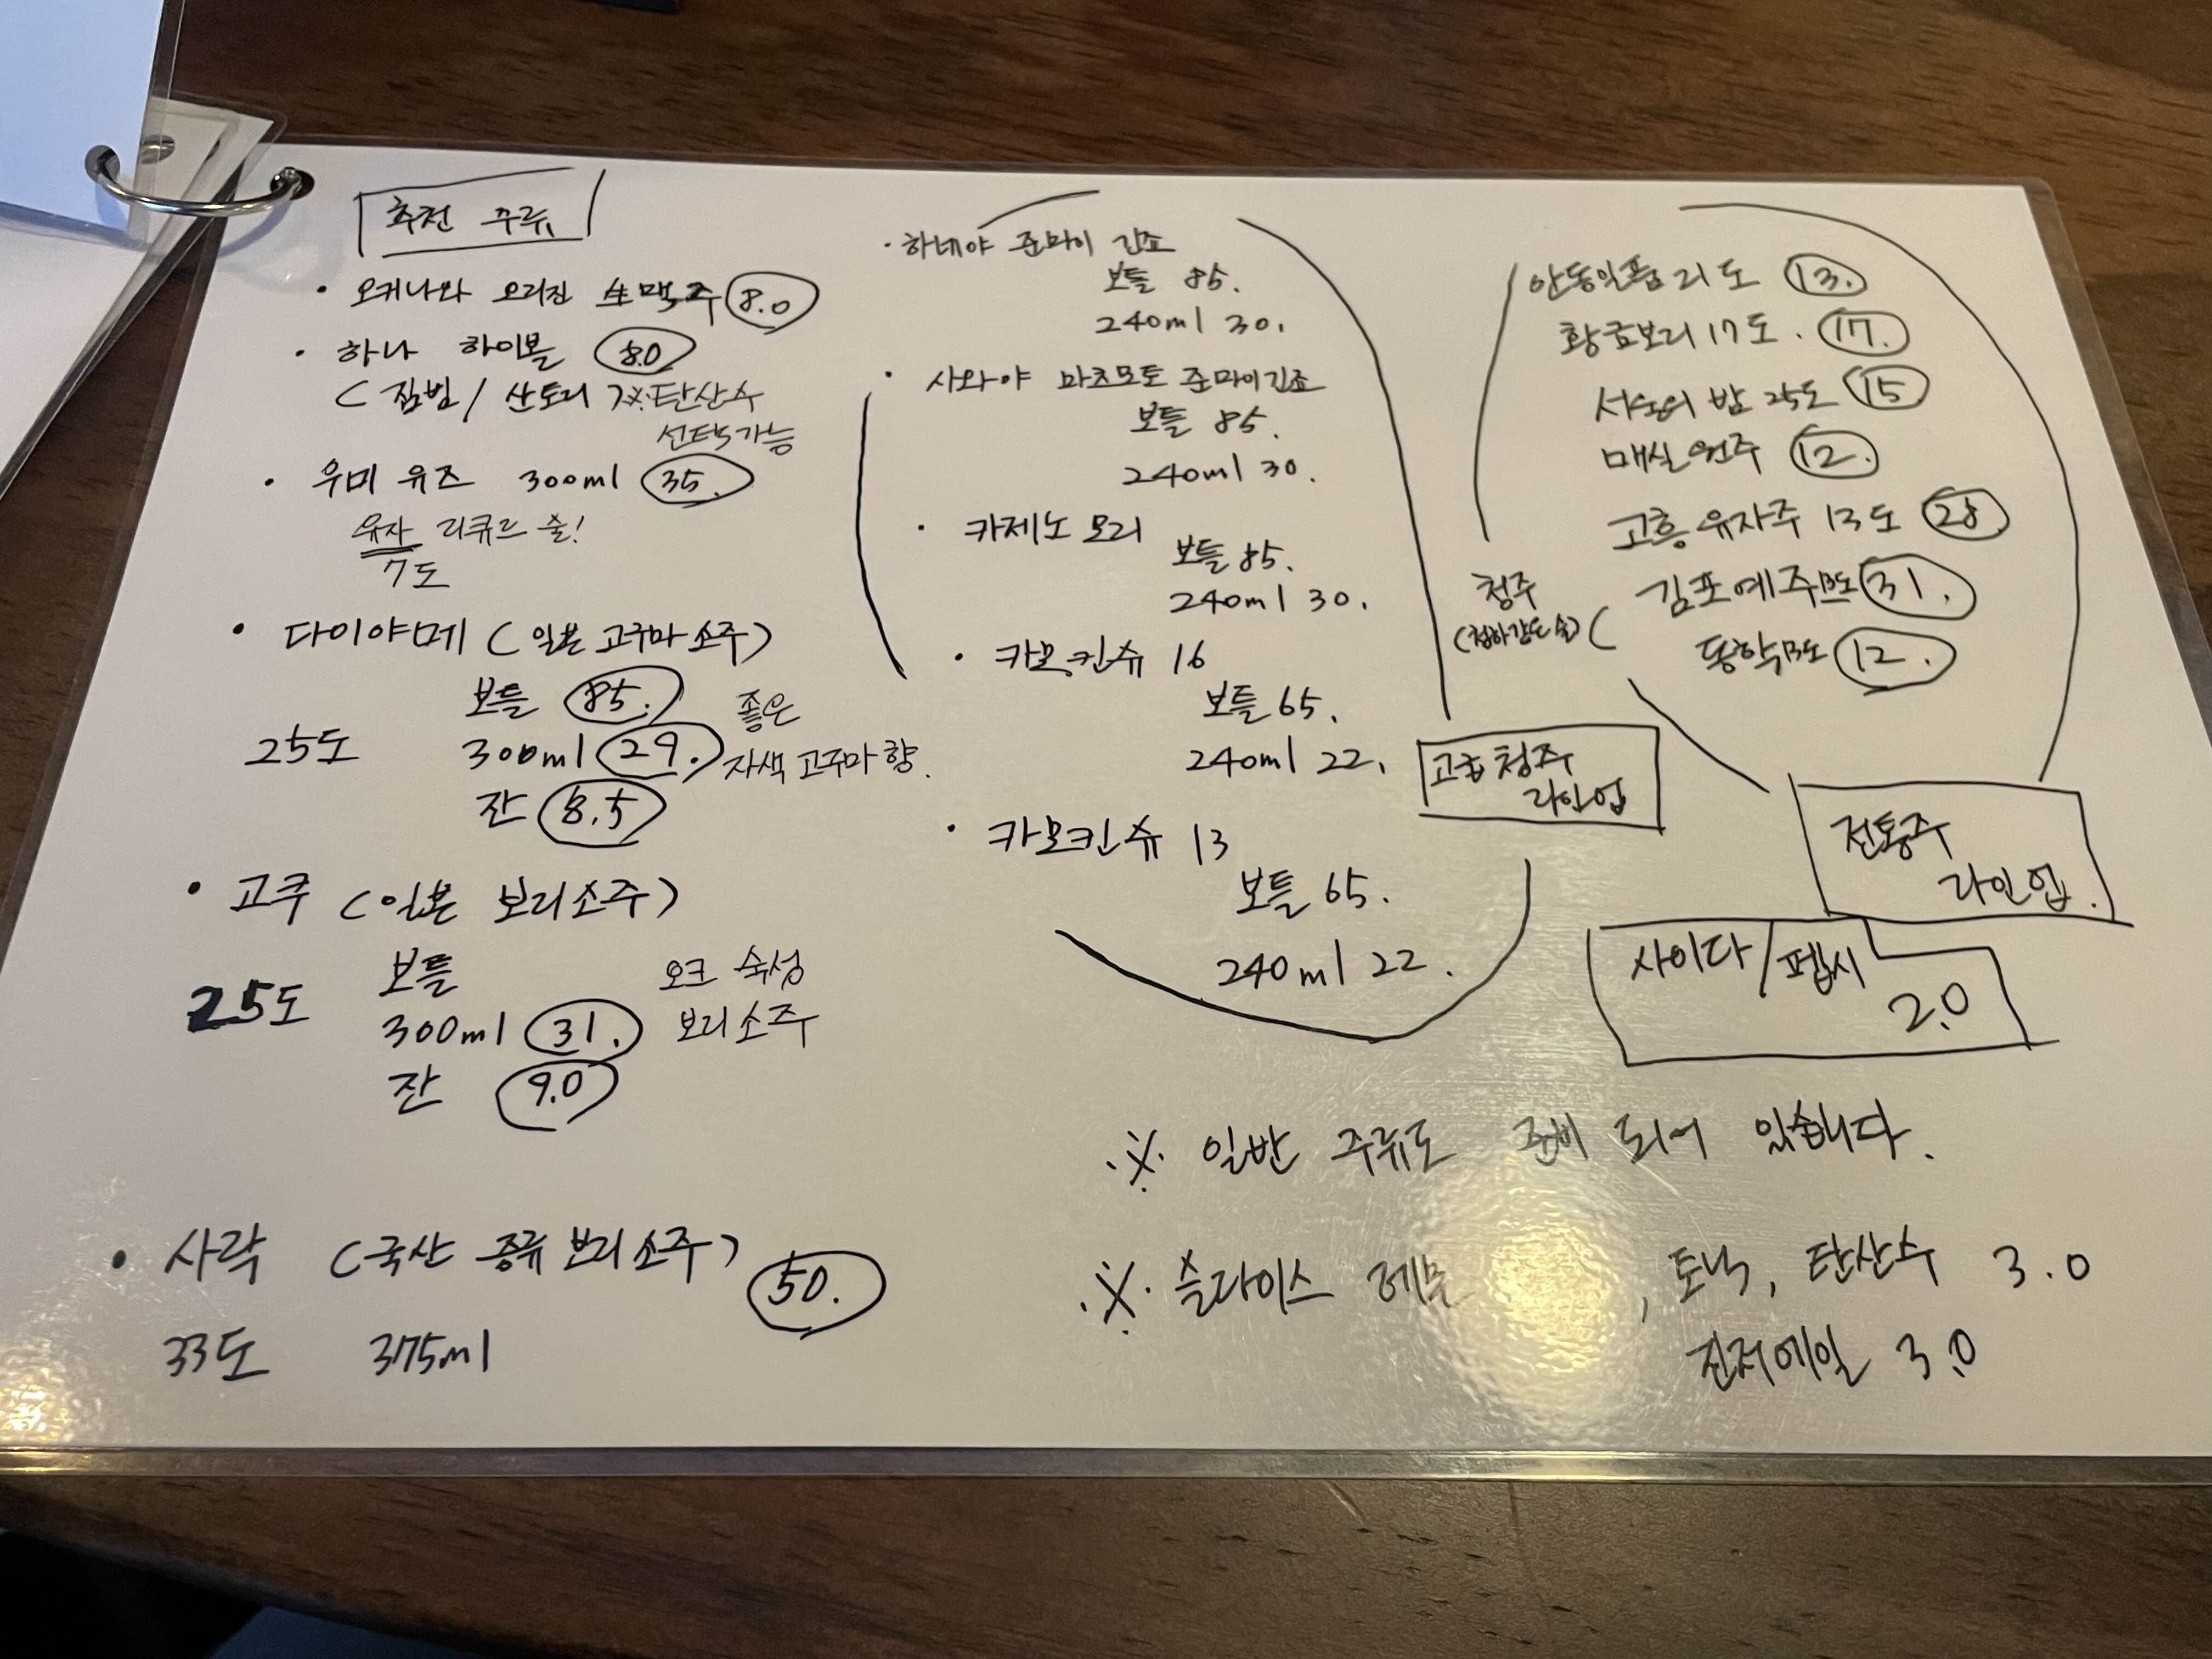 추천 주류
· 오키나와 오리진 生맥주 8.0
· 하나 하이볼 8.0
( 짐빔 / 산토리 ) ※탄산수
선택가능
· 우미 유즈 300ml 35.
유자 리큐르 술!
7도
· 다이야메 ( 일본 고구마 소주 )
보틀 85.
25도 300ml 29.
잔 8.5
좋은
자색 고구마 향.
· 고쿠 ( 일본 보리소주 )
보틀
25도 300ml 31.
잔 9.0
오크 숙성
보리소주
· 사락 ( 국산 증류 보리소주 ) 50.
33도 375ml
· 하네야 준마이 긴죠
보틀 85.
240ml 30.
· 사와야 마츠모토 준마이긴죠
보틀 85.
240ml 30.
· 카제노 모리
보틀 85.
240ml 30.
· 카모킨슈 16
보틀 65.
240ml 22.
· 카모킨슈 13
보틀 65.
240ml 22.
고급 청주
라인업
안동일품 21도 13.
황금보리 17도. 17.
서울의 밤 25도 15
매실원주 12.
고흥 유자주 13도 28
김포예주 13도 31.
동학 13도 12.
청주
(청하같은 술) (
전통주
라인업.
사이다/펩시
2.0
※ 일반 주류도 준비 되어 있습니다.
※ 슬라이스 레몬 , 토닉, 탄산수 3.0
진저에일 3.0